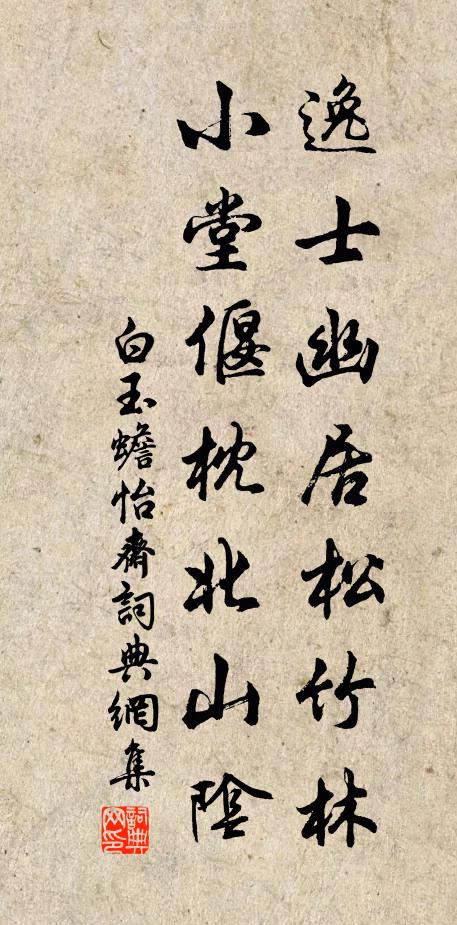 逸士幽居松竹林
小堂偃枕北山陰
白玉蟾怡齋詞典網集
詞典网印